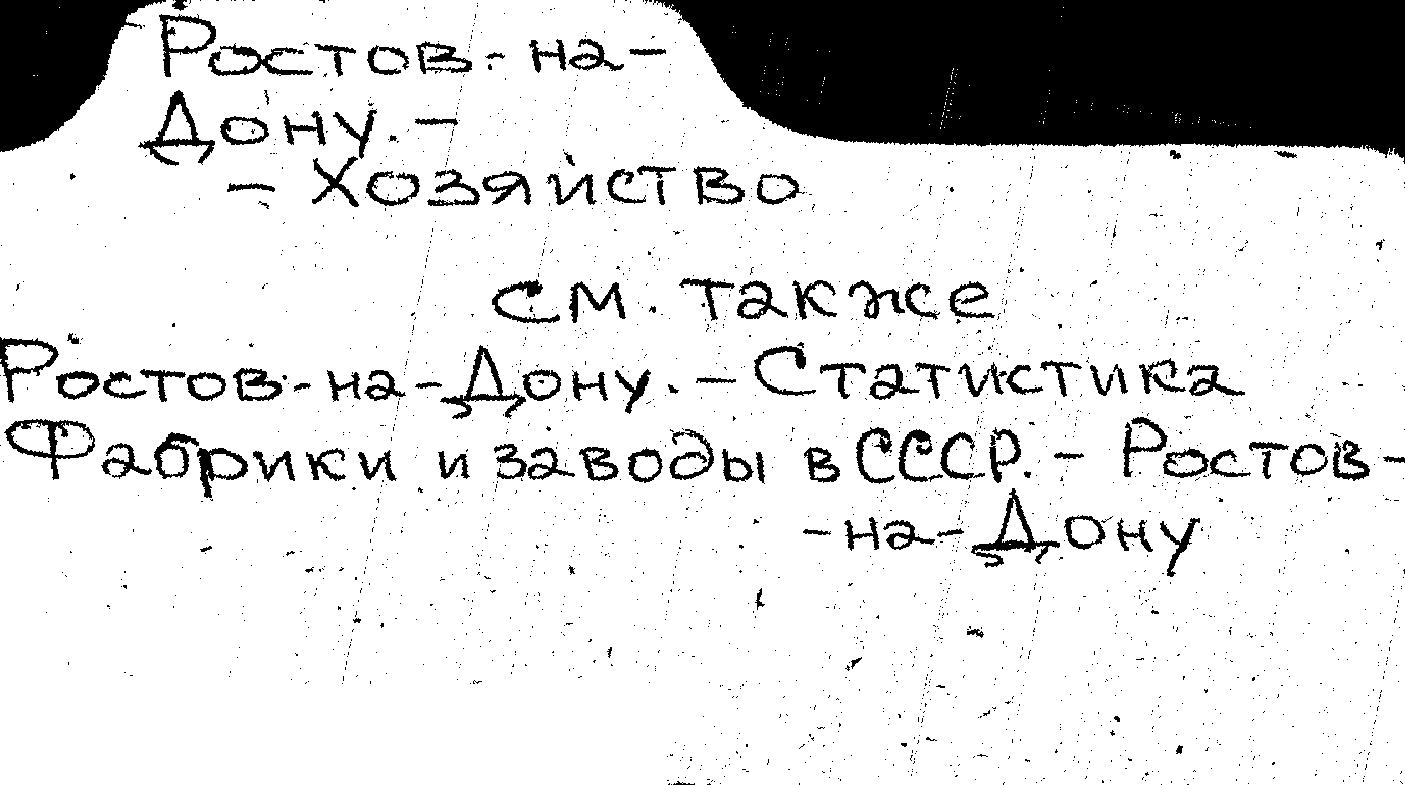 Ростов-на-
Дону. -
- Хозяйство
см. также
Ростов-на-Дону. - Статистика
Фабрики и заводы в СССР. - Ростов-
-на-Дону